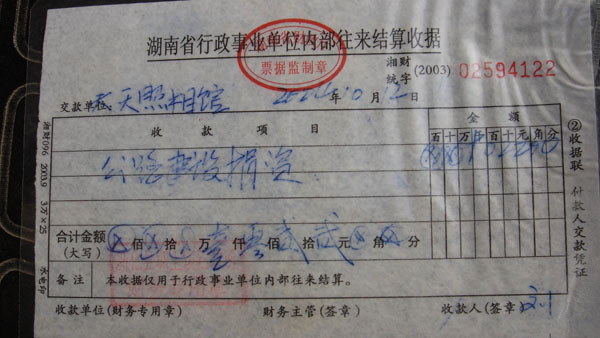 湖南省行政事业单位内部往来结算收据
票据监制章
湘财统字 (2003) 02594122
交款单位: 天照相馆 年10月12日
收款项目 金额
百十万千百十元角分
公路建设捐资
合计金额(大写) 佰拾万仟佰拾元角分 壹零贰贰
备注 本收据仅用于行政事业单位内部往来结算。
收款单位(财务专用章) 财务主管(签章) 收款人(签章) 刘
湘财096 2003.9 3万×25
②收据联 付款人交款凭证